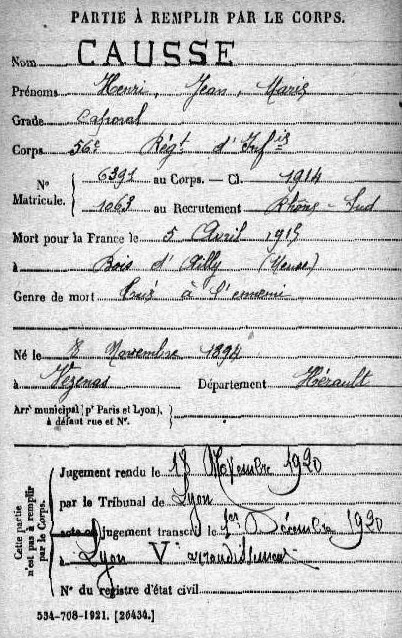 PARTIE À REMPLIR PAR LE CORPS.
Nom CAUSSE
Prénoms Henri, Jean, Marie
Grade Caporal
Corps 56e Régt d'Infie
N° Matricule. 6391 au Corps. — Cl. 1914
1063 au Recrutement Rhône-Sud
Mort pour la France le 5 Avril 1915
à Bois d'Ailly (Meuse)
Genre de mort Tué à l'ennemi
Né le 8 Novembre 1894
à Pézenas Département Hérault
Arrt municipal (pr Paris et Lyon),
à défaut rue et N°.
Cette partie n'est pas à remplir par le Corps.
Jugement rendu le 18 Novembre 1920
par le Tribunal de Lyon
acte ou Jugement transcrit le 1er Décembre 1920
à Lyon Ve arrondissement
N° du registre d'état civil
534-708-1921. [26434.]